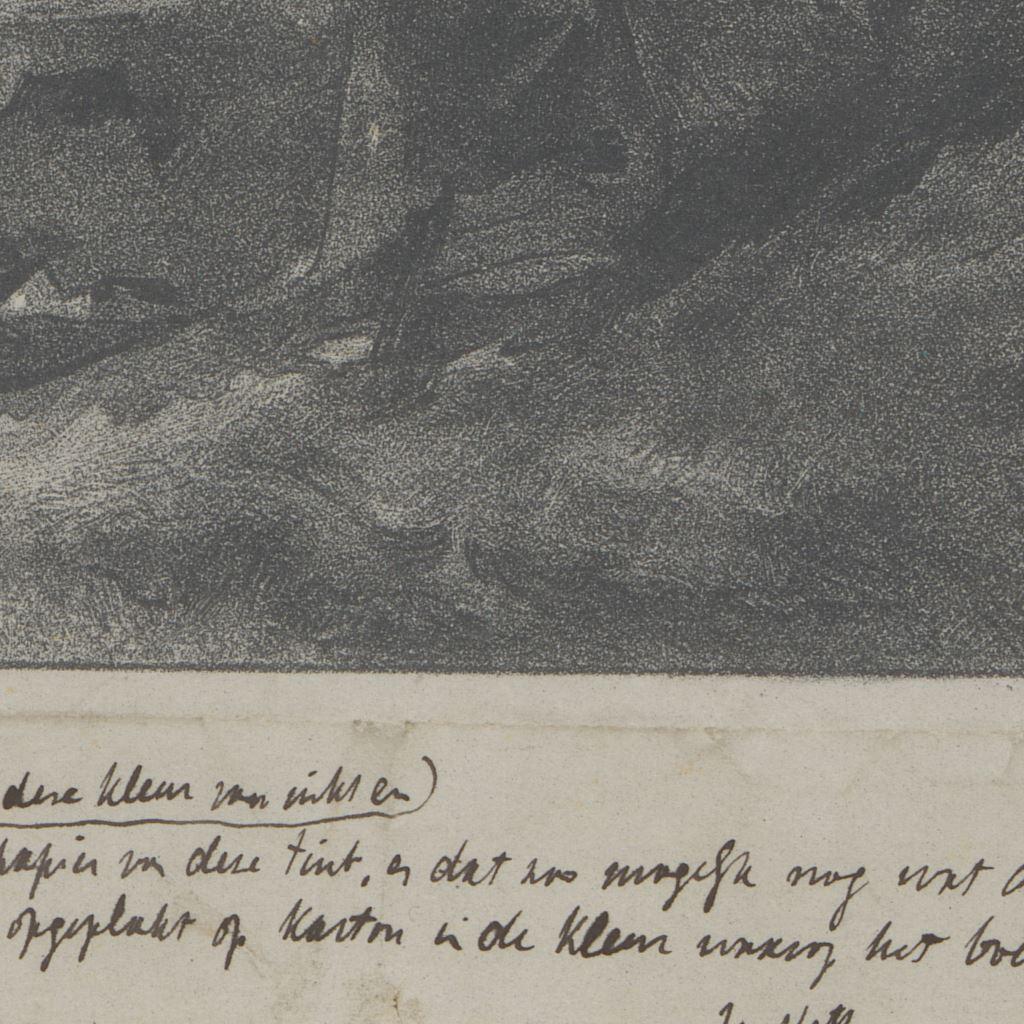 deze kleur van inkt en)
papier van deze tint, en dat zoo mogelijk nog wat
opgeplakt op karton in de kleur waarop het